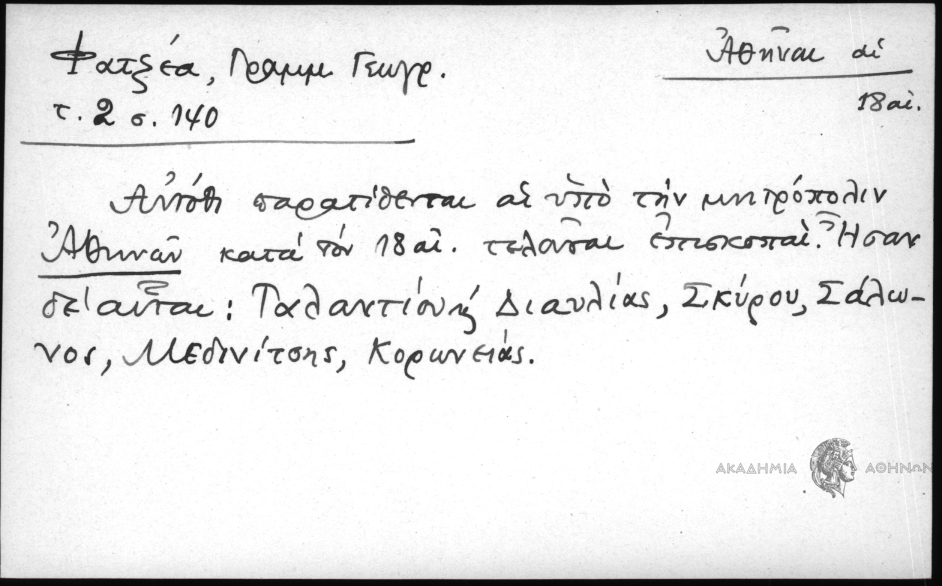 Φατζέα, Γραμμ Γεωγρ.
τ. 2 σ. 140
Ἀθῆναι αἱ
18 αἰ.
Αὐτόθι παρατίθενται αἱ ὑπὸ τὴν μητρόπολιν
Ἀθηνῶν κατά τόν 18 αἰ. τελοῦσαι ἐπισκοπαί. Ἦσαν
δέ αὗται: Ταλαντίου ἤ Διαυλίας, Σκύρου, Σάλω-
νος, Μεδινίτσης, Κορωνείας.
ΑΚΑΔΗΜΙΑ ΑΘΗΝΩΝ